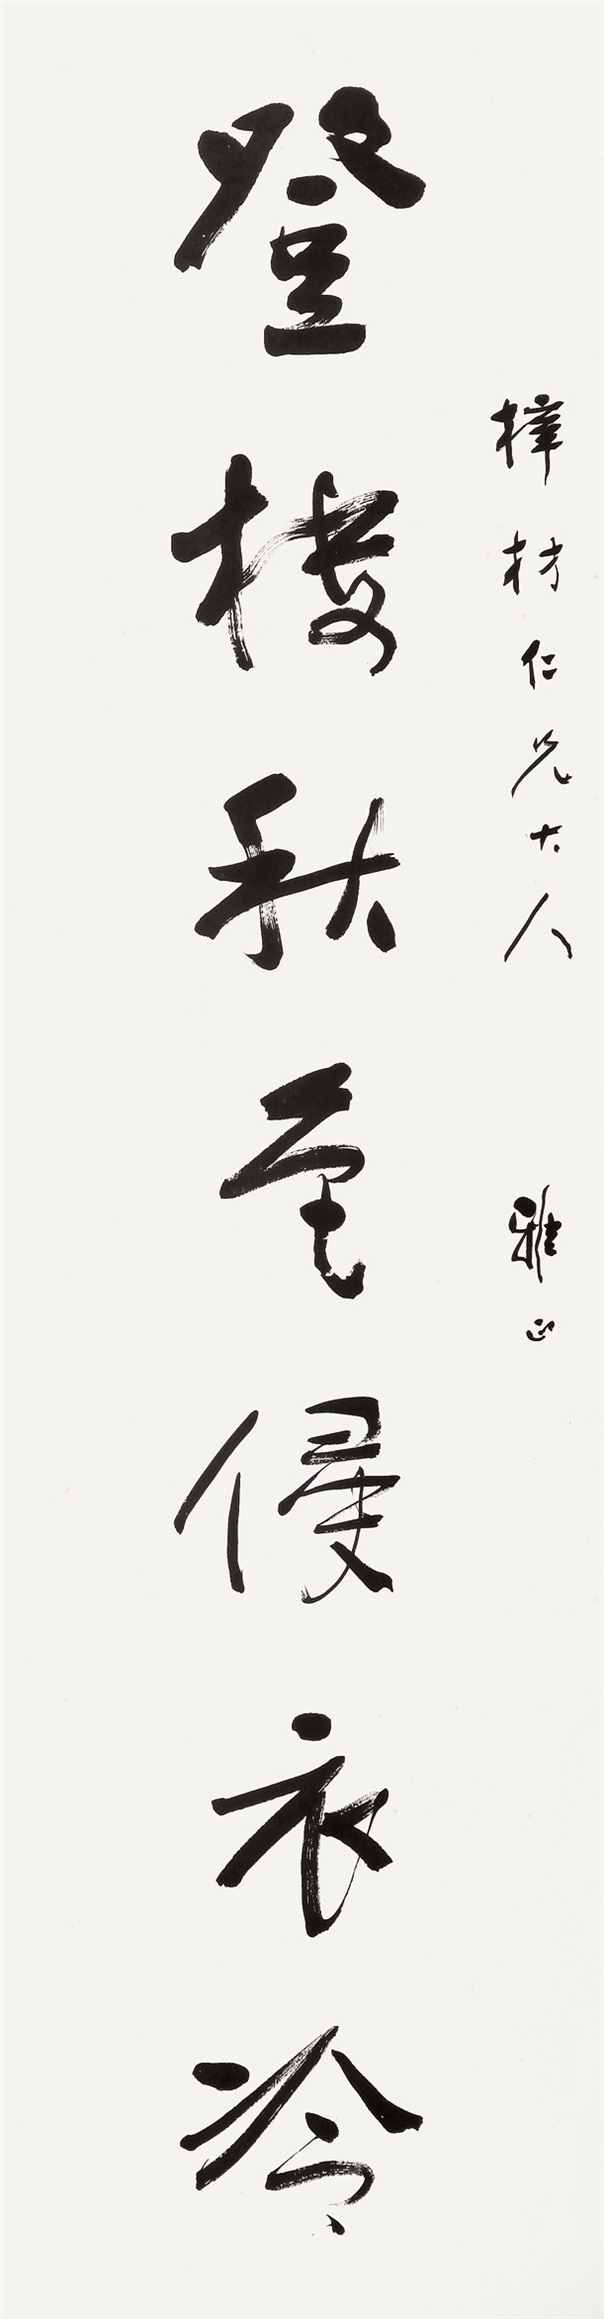 梓材仁兄大人 雅正
登樓秋色侵衣冷